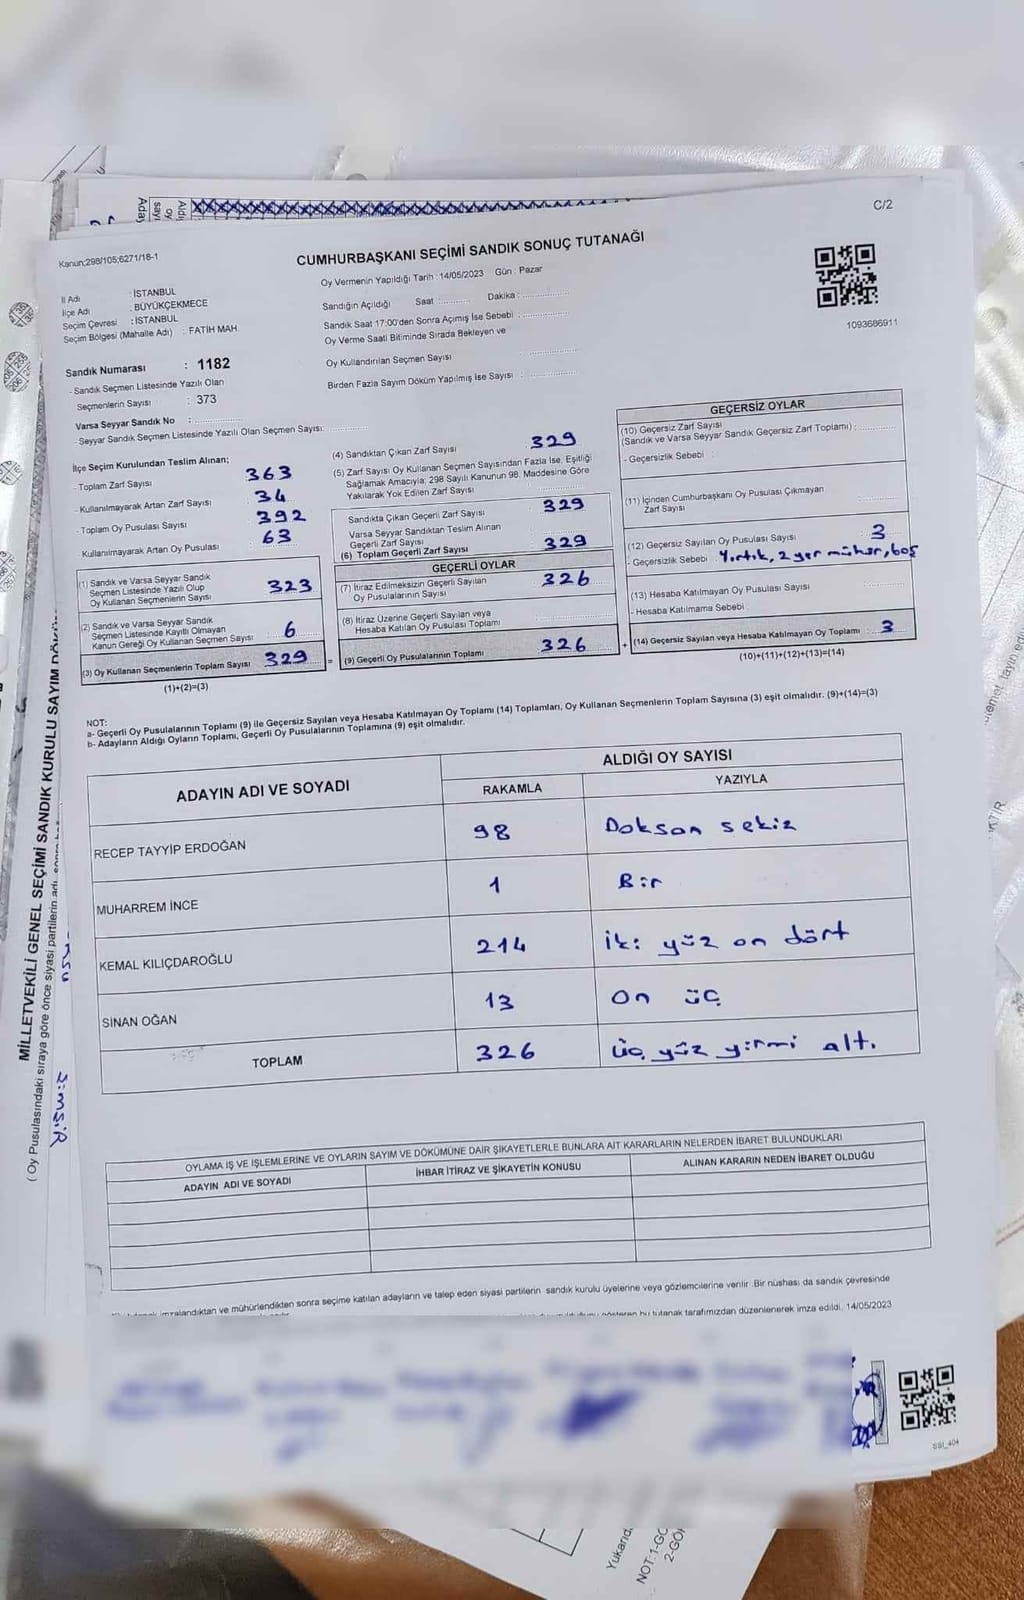 C/2
Kanun;298/105;6271/18-1
CUMHURBAŞKANI SEÇİMİ SANDIK SONUÇ TUTANAĞI
Oy Vermenin Yapıldığı Tarih : 14/05/2023 Gün : Pazar
İl Adı : İSTANBUL
İlçe Adı : BÜYÜKÇEKMECE
Seçim Çevresi : İSTANBUL
Seçim Bölgesi (Mahalle Adı) : FATİH MAH.
Sandığın Açıldığı Saat :.......... Dakika :..............
Sandık Saat 17:00'den Sonra Açımış İse Sebebi :..............
Oy Verme Saati Bitiminde Sırada Bekleyen ve
Oy Kullandırılan Seçmen Sayısı ..............
Birden Fazla Sayım Döküm Yapılmış İse Sayısı :..............
1093686911
Sandık Numarası : 1182
- Sandık Seçmen Listesinde Yazılı Olan
Seçmenlerin Sayısı : 373
Varsa Seyyar Sandık No :..............
- Seyyar Sandık Seçmen Listesinde Yazılı Olan Seçmen Sayısı:..............
İlçe Seçim Kurulundan Teslim Alınan;
- Toplam Zarf Sayısı 363
- Kullanılmayarak Artan Zarf Sayısı 34
- Toplam Oy Pusulası Sayısı 392
- Kullanılmayarak Artan Oy Pusulası 63
(1) Sandık ve Varsa Seyyar Sandık
Seçmen Listesinde Yazılı Olup
Oy Kullanan Seçmenlerin Sayısı 323
(2) Sandık ve Varsa Seyyar Sandık
Seçmen Listesinde Kayıtlı Olmayan
Kanun Gereği Oy Kullanan Seçmen Sayısı 6
(3) Oy Kullanan Seçmenlerin Toplam Sayısı 329
(1)+(2)=(3)
(4) Sandıktan Çıkan Zarf Sayısı 329
(5) Zarf Sayısı Oy Kullanan Seçmen Sayısından Fazla İse, Eşitliği
Sağlamak Amacıyla; 298 Sayılı Kanunun 98. Maddesine Göre
Yakılarak Yok Edilen Zarf Sayısı
Sandıkta Çıkan Geçerli Zarf Sayısı 329
Varsa Seyyar Sandıktan Teslim Alınan
Geçerli Zarf Sayısı
(6) Toplam Geçerli Zarf Sayısı 329
GEÇERLİ OYLAR
(7) İtiraz Edilmeksizin Geçerli Sayılan
Oy Pusulalarının Sayısı 326
(8) İtiraz Üzerine Geçerli Sayılan veya
Hesaba Katılan Oy Pusulası Toplamı
= (9) Geçerli Oy Pusulalarının Toplamı 326
GEÇERSİZ OYLAR
(10) Geçersiz Zarf Sayısı
(Sandık ve Varsa Seyyar Sandık Geçersiz Zarf Toplamı) :
- Geçersizlik Sebebi :
(11) İçinden Cumhurbaşkanı Oy Pusulası Çıkmayan
Zarf Sayısı
(12) Geçersiz Sayılan Oy Pusulası Sayısı 3
- Geçersizlik Sebebi : Yırtık, 2 yer mühür, boş
(13) Hesaba Katılmayan Oy Pusulası Sayısı
- Hesaba Katılmama Sebebi :
+ (14) Geçersiz Sayılan veya Hesaba Katılmayan Oy Toplamı 3
(10)+(11)+(12)+(13)=(14)
NOT:
a- Geçerli Oy Pusulalarının Toplamı (9) ile Geçersiz Sayılan veya Hesaba Katılmayan Oy Toplamı (14) Toplamları, Oy Kullanan Seçmenlerin Toplam Sayısına (3) eşit olmalıdır. (9)+(14)=(3)
b- Adayların Aldığı Oyların Toplamı, Geçerli Oy Pusulalarının Toplamına (9) eşit olmalıdır.
ADAYIN ADI VE SOYADI ALDIĞI OY SAYISI
RAKAMLA YAZIYLA
RECEP TAYYİP ERDOĞAN 98 Doksan sekiz
MUHARREM İNCE 1 Bir
KEMAL KILIÇDAROĞLU 214 İki yüz on dört
SİNAN OĞAN 13 On üç
TOPLAM 326 üç yüz yirmi altı
OYLAMA İŞ VE İŞLEMLERİNE VE OYLARIN SAYIM VE DÖKÜMÜNE DAİR ŞİKAYETLERLE BUNLARA AİT KARARLARIN NELERDEN İBARET BULUNDUKLARI
ADAYIN ADI VE SOYADI İHBAR İTİRAZ VE ŞİKAYETİN KONUSU ALINAN KARARIN NEDEN İBARET OLDUĞU
imzalandıktan ve mühürlendikten sonra seçime katılan adayların ve talep eden siyasi partilerin sandık kurulu üyelerine veya gözlemcilerine verilir. Bir nüshası da sandık çevresinde
gösteren bu tutanak tarafımızdan düzenlenerek imza edildi. 14/05/2023
SSI_404
MİLLETVEKİLİ GENEL SEÇİMİ SANDIK KURULU SAYIM DÖKÜM
( Oy Pusulasındaki sıraya göre önce siyasi partilerin adı,
NOT: 1-
2-